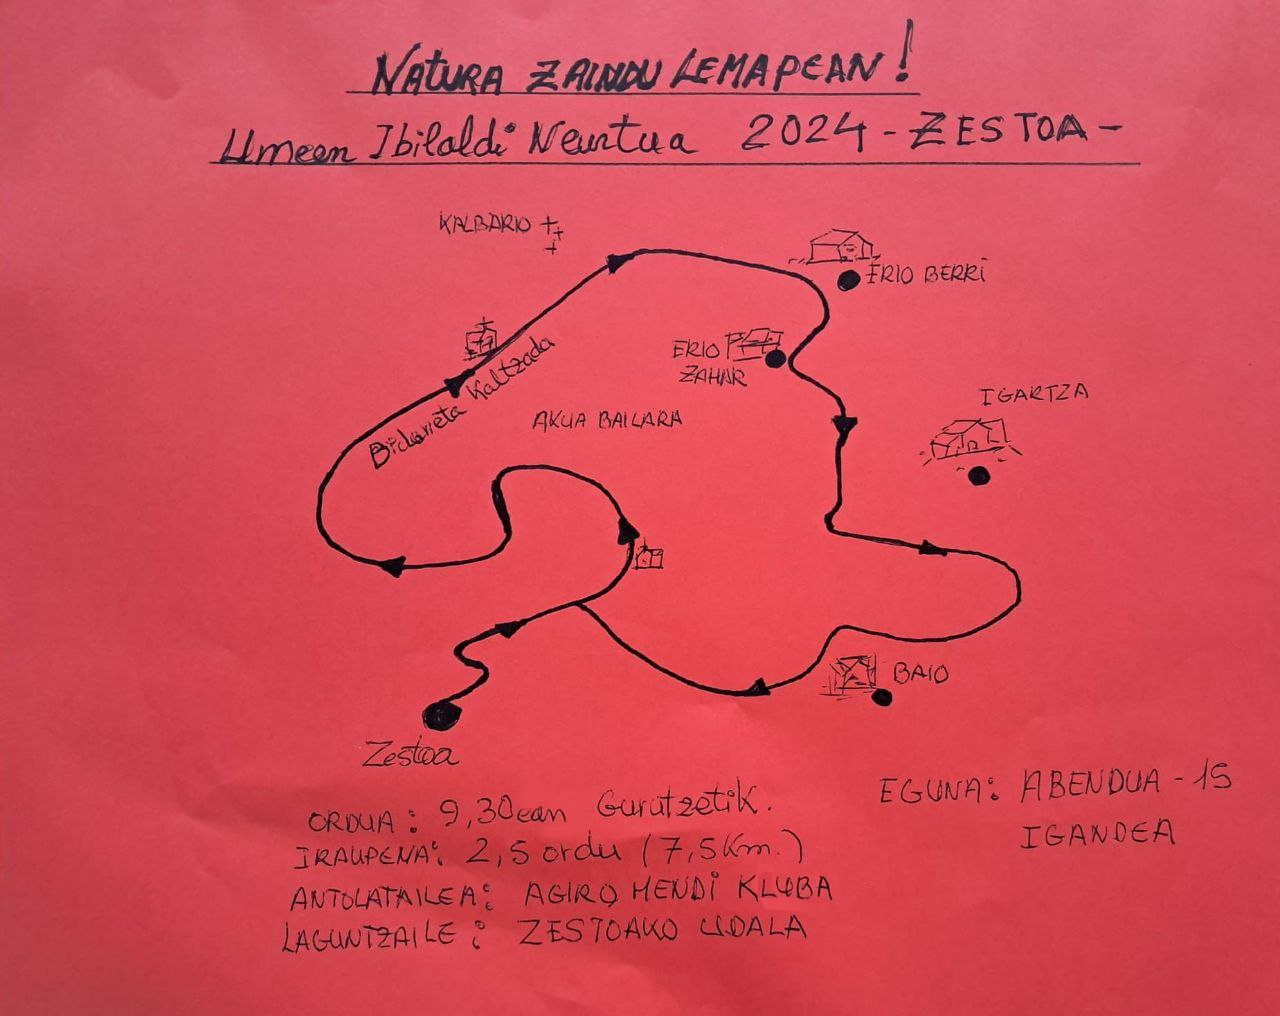 NATURA ZAINDU LEMAPEAN!
Umeen Ibilaldi Neurtua 2024 - ZESTOA -
KALBARIO
ERIO BERRI
ERIO
ZAHAR
IGARTZA
Bidarieta Kaltzada
AKUA BAILARA
BAIO
Zestoa
EGUNA: ABENDUA - 15
IGANDEA
ORDUA: 9,30ean Gurutzetik.
IRAUPENA: 2,5 ordu (7,5 Km.)
ANTOLATAILEA: AGIRO MENDI KLUBA
LAGUNTZAILE: ZESTOAKO UDALA